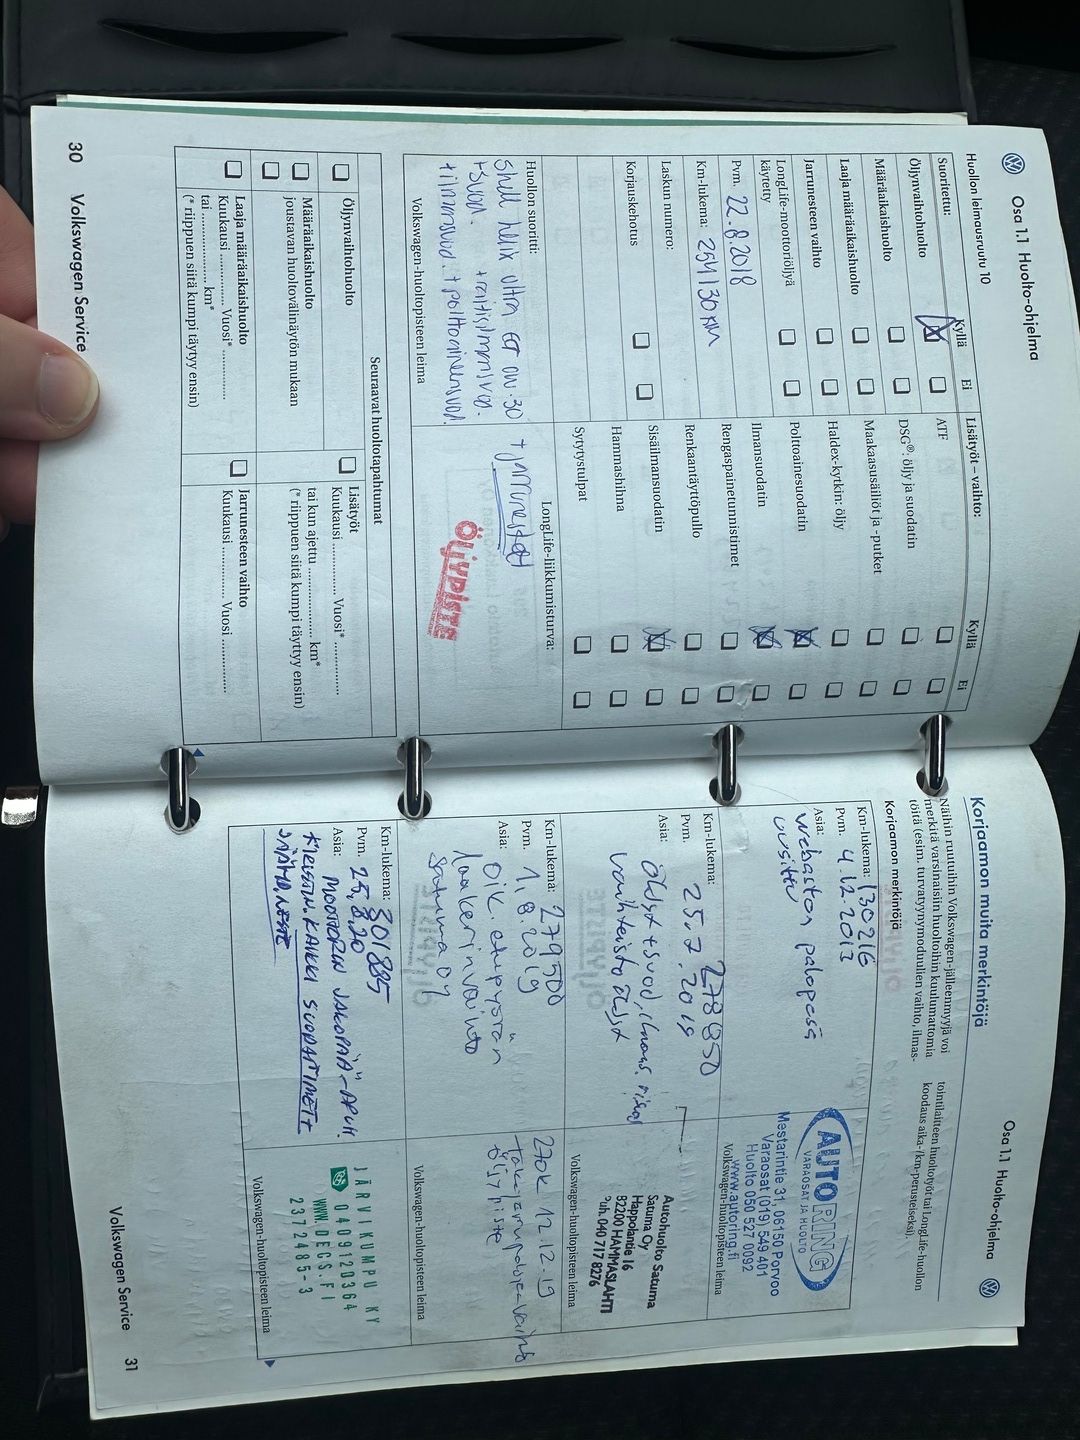 Osa 1.1 Huolto-ohjelma
Huollon leimausruutu 10
Suoritettu:
Kyllä
Ei
Öljynvaihtohuolto
Määräaikaishuolto
Laaja määräaikaishuolto
Jarrunesteen vaihto
LongLife-moottoriöljyä
käytetty
Pvm. 22.8.2018
Km-lukema: 254130 km
Laskun numero:
Korjauskehotus
Lisätyöt – vaihto:
Kyllä
Ei
ATF
DSG®: öljy ja suodatin
Maakaasusäiliöt ja -putket
Haldex-kytkin: öljy
Polttoainesuodatin
Ilmansuodatin
Rengaspainetunnistimet
Renkaantäyttöpullo
Sisäilmansuodatin
Hammashihna
Sytytystulpat
Huollon suoritti:
Shell helix ultra ect 5w-30
+suod. + raitisilmasuod.
+ilmansuod. + polttoainensuod.
Volkswagen-huoltopisteen leima
LongLife-liikkumisturva:
+ jarrunesteet
ÖLJYPISTE
Seuraavat huoltotapahtumat
Öljynvaihtohuolto
Määräaikaishuolto
joustavan huoltovälinäytön mukaan
Laaja määräaikaishuolto
Kuukausi ............. Vuosi* .............
tai ............. km*
(* riippuen siitä kumpi täytyy ensin)
Lisätyöt
Kuukausi ............. Vuosi* .............
tai kun ajettu ............. km*
(* riippuen siitä kumpi täyttyy ensin)
Jarrunesteen vaihto
Kuukausi ............. Vuosi .............
30 Volkswagen Service
Osa 1.1 Huolto-ohjelma
Korjaamon muita merkintöjä
Näihin ruutuihin Volkswagen-jälleenmyyjä voi
merkitä varsinaisiin huoltoihin kuulumattomia
töitä (esim. turvatyynymoduulien vaihto, ilmas-
tointilaitteen huoltotyöt tai LongLife-huollon
koodaus aika-/km-perusteiseksi).
Korjaamon merkintöjä
Km-lukema: 130216
Pvm. 4.12.2013
Asia:
Webaston palopesä
uusittu
AUTORING
VARAOSAT JA HUOLTO
Mestarintie 31, 06150 Porvoo
Varaosat (019) 549 401
Huolto 050 527 0092
www.autoring.fi
Volkswagen-huoltopisteen leima
Km-lukema: 278850
Pvm. 25.7.2019
Asia:
Öljyt + suod, ilmans.
vaihteisto öljyt
Autohuolto Satuma
Satuma Oy
Happolantie 16
82200 HAMMASLAHTI
Puh. 040 717 8276
Volkswagen-huoltopisteen leima
Km-lukema: 279500
Pvm. 1.8.2019
Asia:
Oik. etupyörän
laakerin vaihto
Satuma oy
270k 12.12.19
öljyhiste
Volkswagen-huoltopisteen leima
Km-lukema: 301885
Pvm. 25.8.20
Asia:
MOOTTORIN JAKOPÄÄ-APUH.
KAIKKI SUODATTIMET +
JÄÄHD.NESTE
JÄRVIKUMPU KY
0409120364
WWW.DECS.FI
2372485-3
Volkswagen-huoltopisteen leima
Volkswagen Service 31